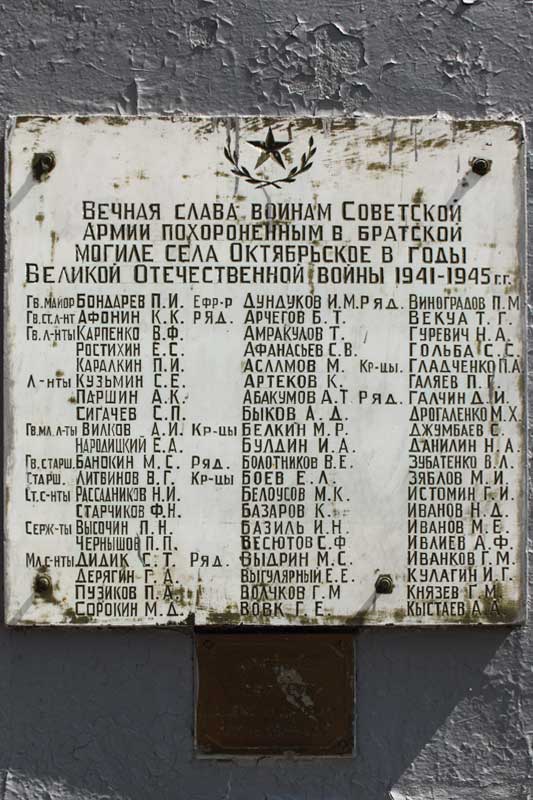 Вечная слава воинам Советской
Армии похороненным в братской
могиле села Октябрьское в годы
Великой Отечественной войны 1941-1945 г.г.
Гв.майор Бондарев П.И. Ефр-р Дундуков И.М. Ряд. Виноградов П.М
Гв.ст.л-нт Афонин К.К. Ряд. Арчегов Б.Т. Векуа Т.Г.
Гв.л-нты Карпенко В.Ф. Амракулов Т. Гуревич Н.А.
Ростихин Е.С. Афанасьев С.В. Гольба С.С.
Каралкин П.И. Асламов М. Кр-цы. Гладченко П.А
Л-нты Кузьмин С.Е. Артеков К. Галяев П.Г.
Паршин А.К. Абакумов А.Т Ряд. Галчин Д.И.
Сигачев С.П. Быков А.Д. Дрогаленко М.Х
Гв.мл.л-ты Вилков А.И Кр-цы Белкин М.Р. Джумбаев С.
Народицкий Е.Д. Булдин И.А. Данилин Н.А
Гв.старш. Банокин М.С. Ряд. Болотников В.Е. Зубатенко В.Л.
Старш. Литвинов В.Г. Кр-цы Боев Е.Л. Зяблов М.И
Ст.с-нты Рассадников Н.И. Белоусов М.К. Истомин Г.И
Старчиков Ф.Н. Базаров К. Иванов Н.Д.
Серж-ты Высочин П.Н. Базиль И.Н. Иванов М.Е.
Чернышов П.П. Весютов С.Ф Ивлиев А.Ф
Мл.с-нты Дидик С.Т. Ряд. Выдрин М.С. Иванков Г.М.
Дерягин Г.А. Выгулярный Е.Е. Кулагин И.Г.
Пузиков П.А. Волчуков Г.М Князев Г.М.
Сорокин М.Д. Вовк Г.Е. Кыстаев А.А.